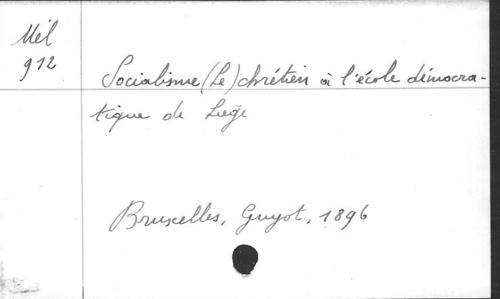 Mél
912
Socialisme (Le) chrétien à l'école démocra-
tique de Liège
Bruxelles, Guyot, 1896